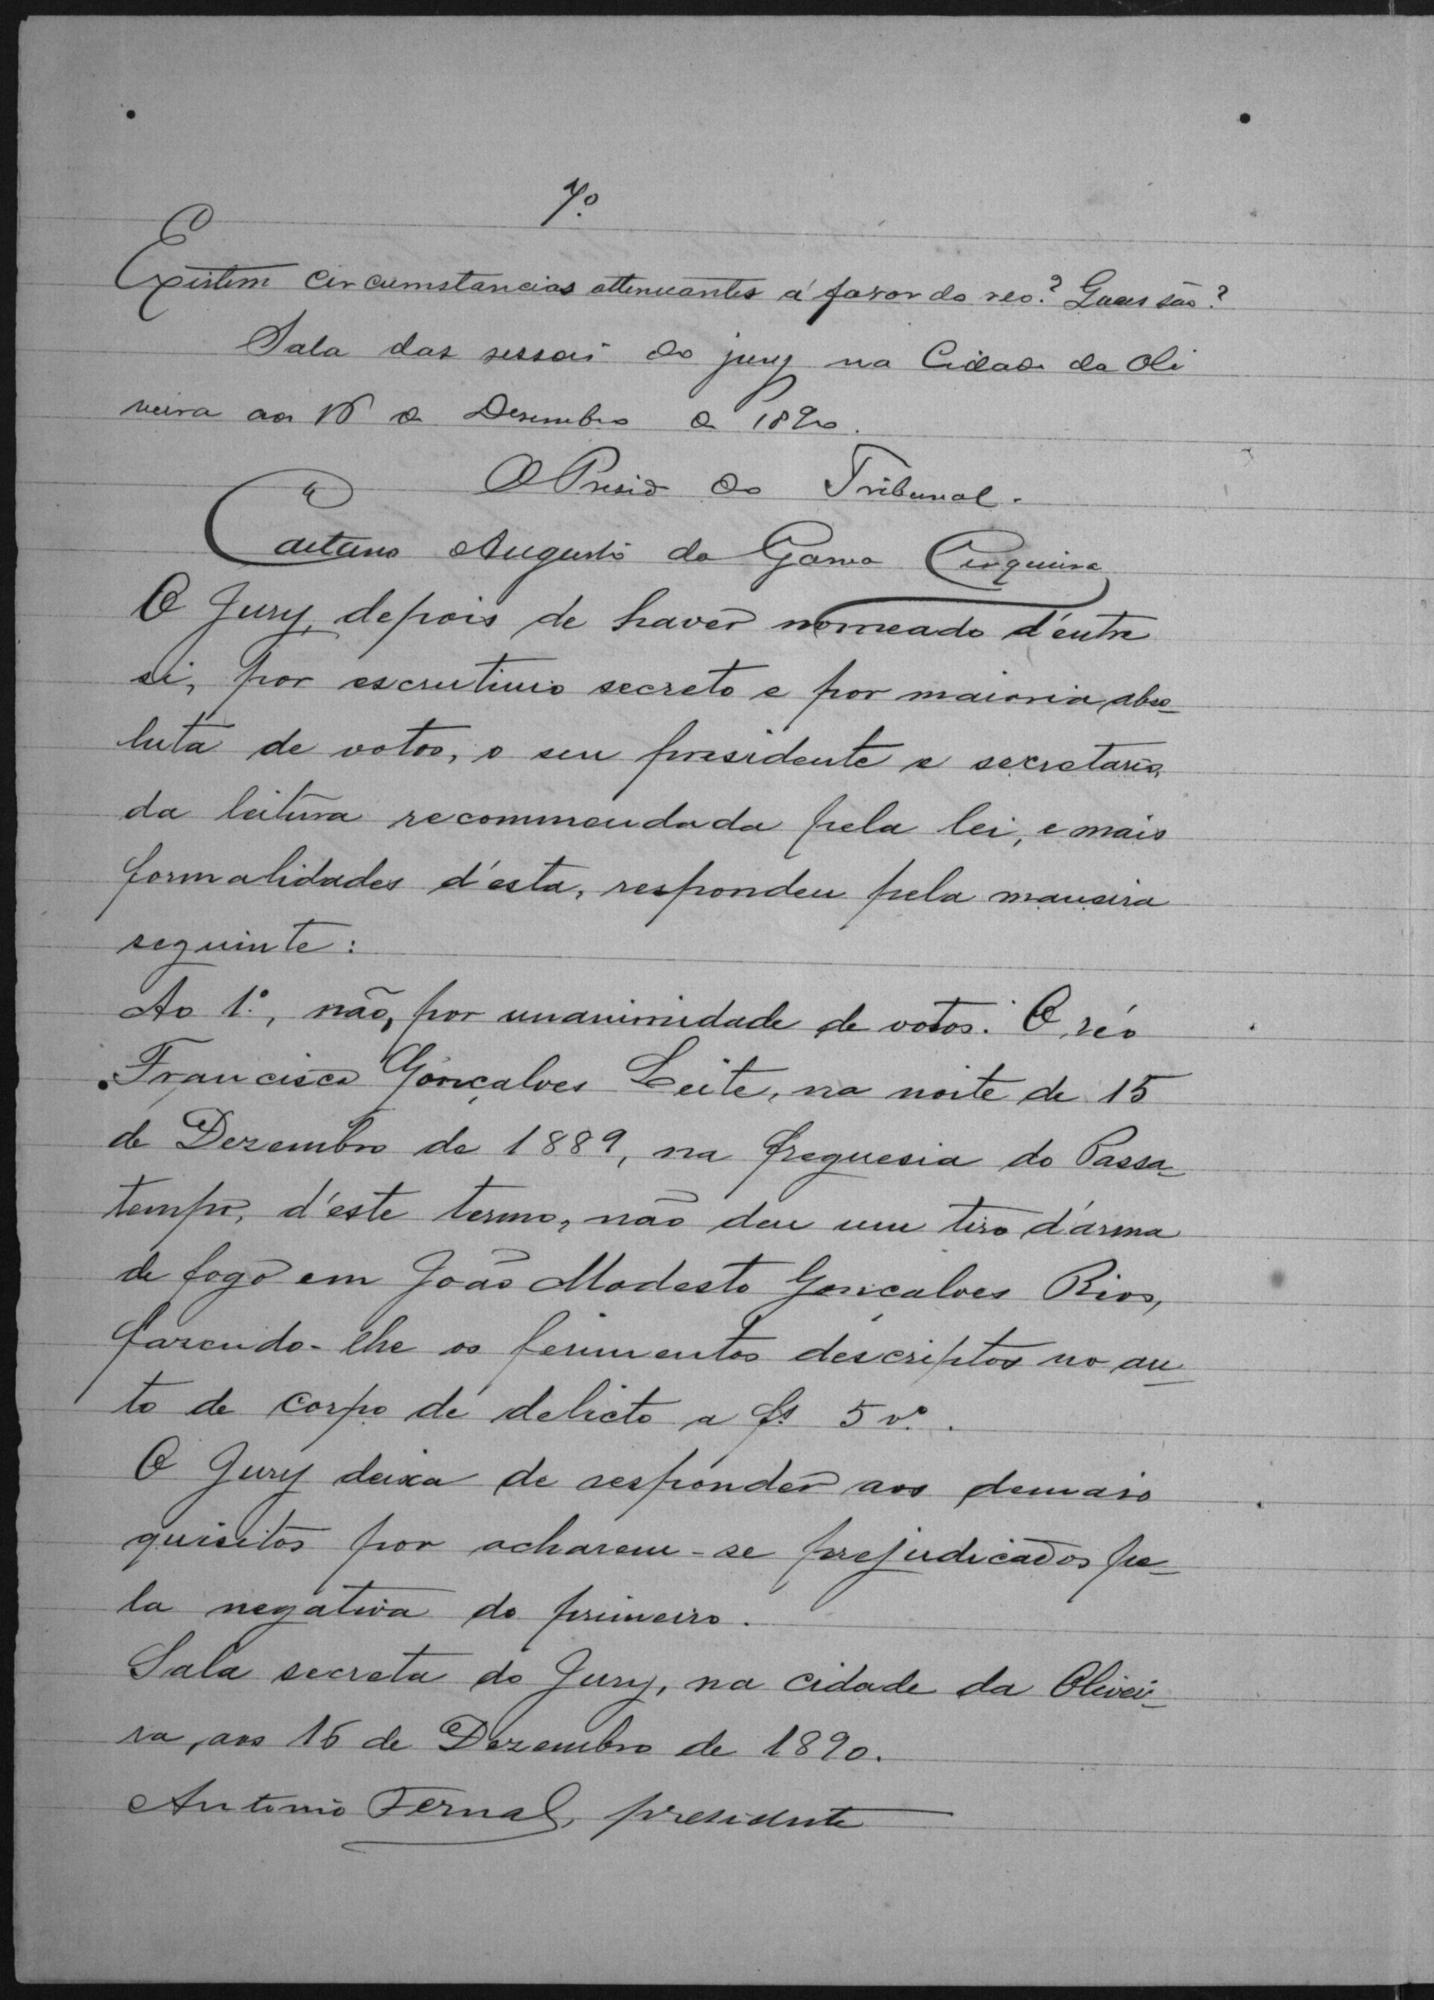 7º
Existem circumstancias attenuantes á favor do reo? Quaes são?
Sala das sessoẽs do jury na Cidade da Oli
veira aos 16 de Desembro de 1890.
O Presid do Tribunal.
Caetano Augusto da Gama Cerqueira
O Jury, depois de haver nomeado d'entre
si, por escrutinio secreto e por maioria abso-
luta de votos, o seu presidente e secretario,
da leitura recommendada pela lei, e mais
formalidades d'esta, respondeu pela maneira
seguinte:
Ao 1º, não, por unanimidade de votos. O réo
Francisco Gonçalves Leite, na noite de 15
de Dezembro de 1889, na freguesia do Passa-
tempo, d'este termo, não deu um tiro d'arma
de fogo em João Modesto Gonçalves Rios,
fazendo-lhe os ferimentos descriptos no au-
to de corpo de delicto a fs 5 vº.
O Jury deixa de responder aos demais
quisitos por acharem-se prejudicados pe-
la negativa do primeiro.
Sala secreta do Jury, na cidade da Olivei-
ra, aos 16 de Dezembro de 1890.
Antonio Fernal, presidente